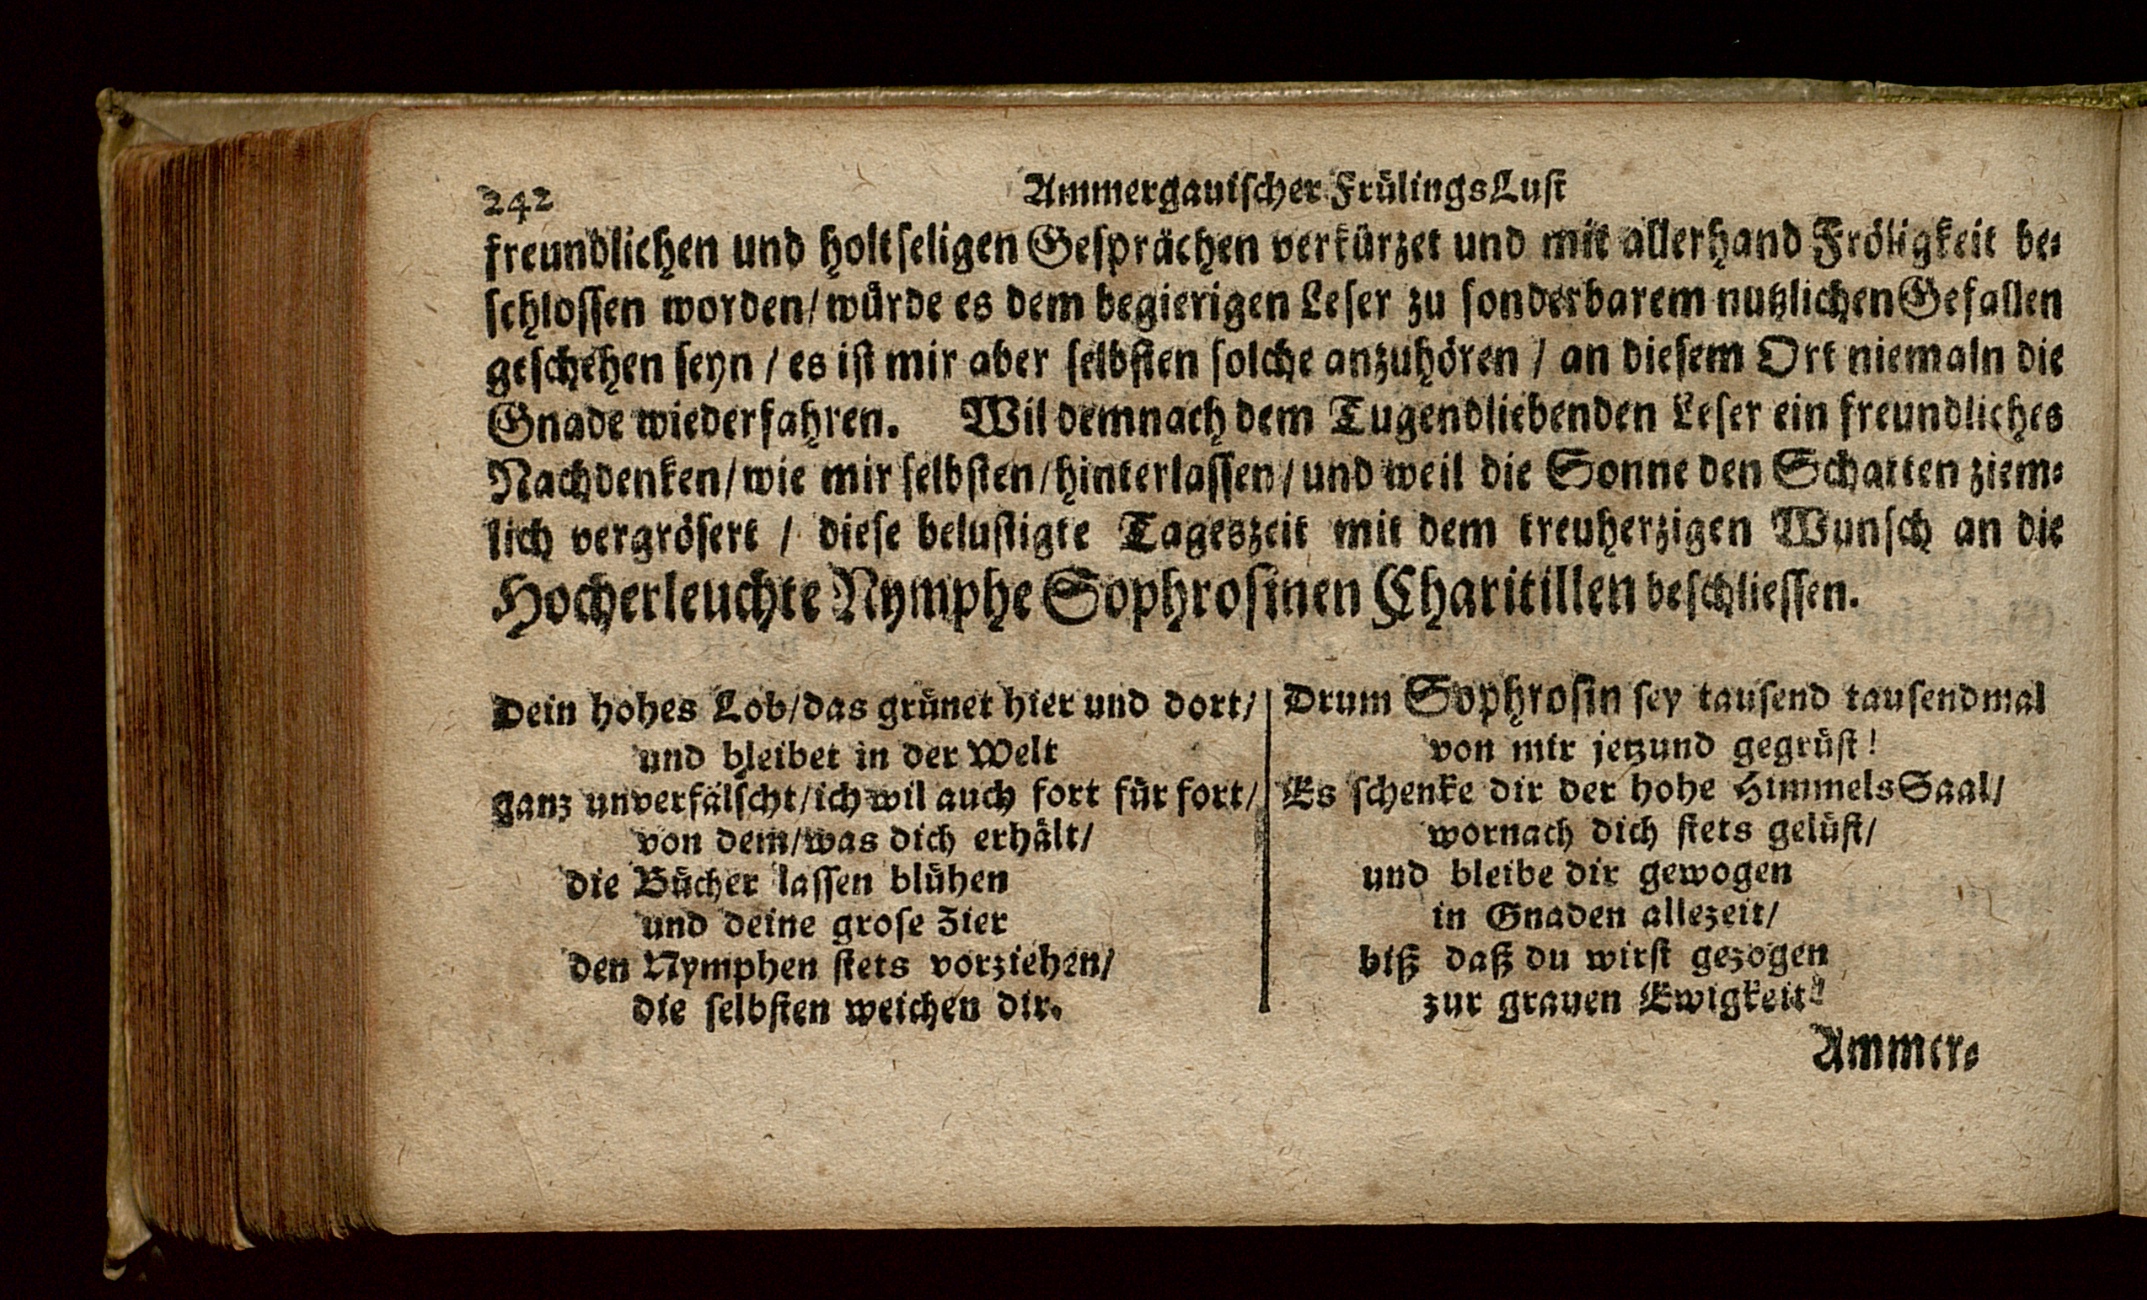 242 Ammergauischer FrülingsLust
freundlichen und holtseligen Gesprächen verkürzet und mit allerhand Fröligkeit be-
schlossen worden/ würde es dem begierigen Leser zu sonderbarem nutzlichen Gefallen
geschehen seyn / es ist mir aber selbsten solche anzuhören / an diesem Ort niemaln die
Gnade wiederfahren. Wil demnach dem Tugendliebenden Leser ein freundliches
Nachdenken/ wie mir selbsten/ hinterlassen/ und weil die Sonne den Schatten ziem-
lich vergrösert / diese belustigte Tageszeit mit dem treuherzigen Wunsch an die
Hocherleuchte Nymphe Sophrosinen Charitillen beschliessen.
Dein hohes Lob/ das grünet hier und dort/
und bleibet in der Welt
ganz unverfälscht/ ich wil auch fort für fort/
von dem/ was dich erhält/
die Bücher lassen blühen
und deine grose Zier
den Nymphen stets vorziehen/
die selbsten weichen dir.
Drum Sophrosin sey tausend tausendmal
von mir jetzund gegrüst!
Es schenke dir der hohe HimmelsSaal/
wornach dich stets gelüst/
und bleibe dir gewogen
in Gnaden allezeit/
biß daß du wirst gezogen
zur grauen Ewigkeit!
Ammer-